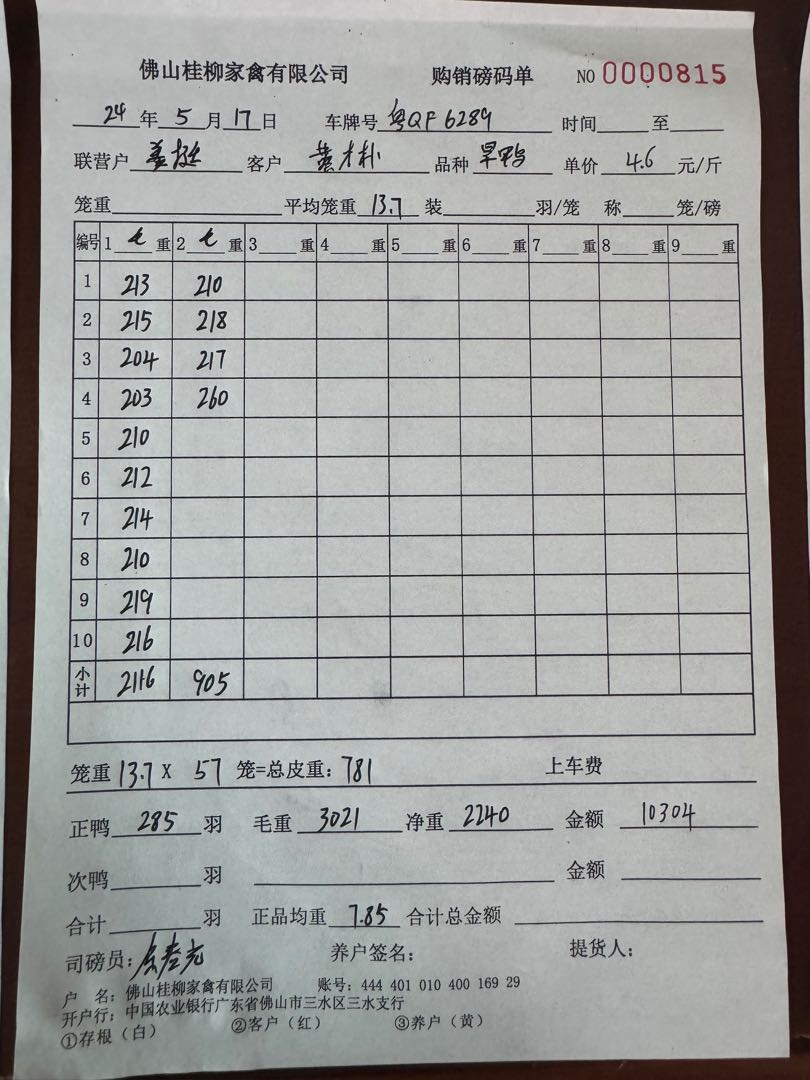 佛山桂柳家禽有限公司 购销磅码单 NO 0000815
24 年 5 月 17 日 车牌号 粤QF6289 时间 至
联营户 姜挺 客户 黄才朴 品种 旱鸭 单价 4.6 元/斤
笼重 平均笼重 13.7 装 羽/笼 称 笼/磅
编号 1 七 重 2 七 重 3 重 4 重 5 重 6 重 7 重 8 重 9 重
1 213 210
2 215 218
3 204 217
4 203 260
5 210
6 212
7 214
8 210
9 219
10 216
小计 2116 905
笼重 13.7 X 57 笼=总皮重: 781 上车费
正鸭 285 羽 毛重 3021 净重 2240 金额 10304
次鸭 羽 金额
合计 羽 正品均重 7.85 合计总金额
司磅员: 养户签名: 提货人:
户 名: 佛山桂柳家禽有限公司 账号: 444 401 010 400 169 29
开户行: 中国农业银行广东省佛山市三水区三水支行
①存根(白) ②客户(红) ③养户(黄)